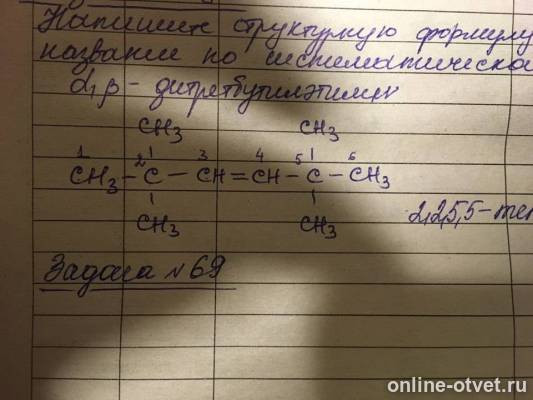 Напишите структурную формулу
название по систематическо
α,β – дитретбутилэтилен
CH3 CH3
1 2 3 4 5 6
CH3 – C – CH = CH – C – CH3
CH3 CH3
2,2,5,5-тет
Задача №69
online-otvet.ru